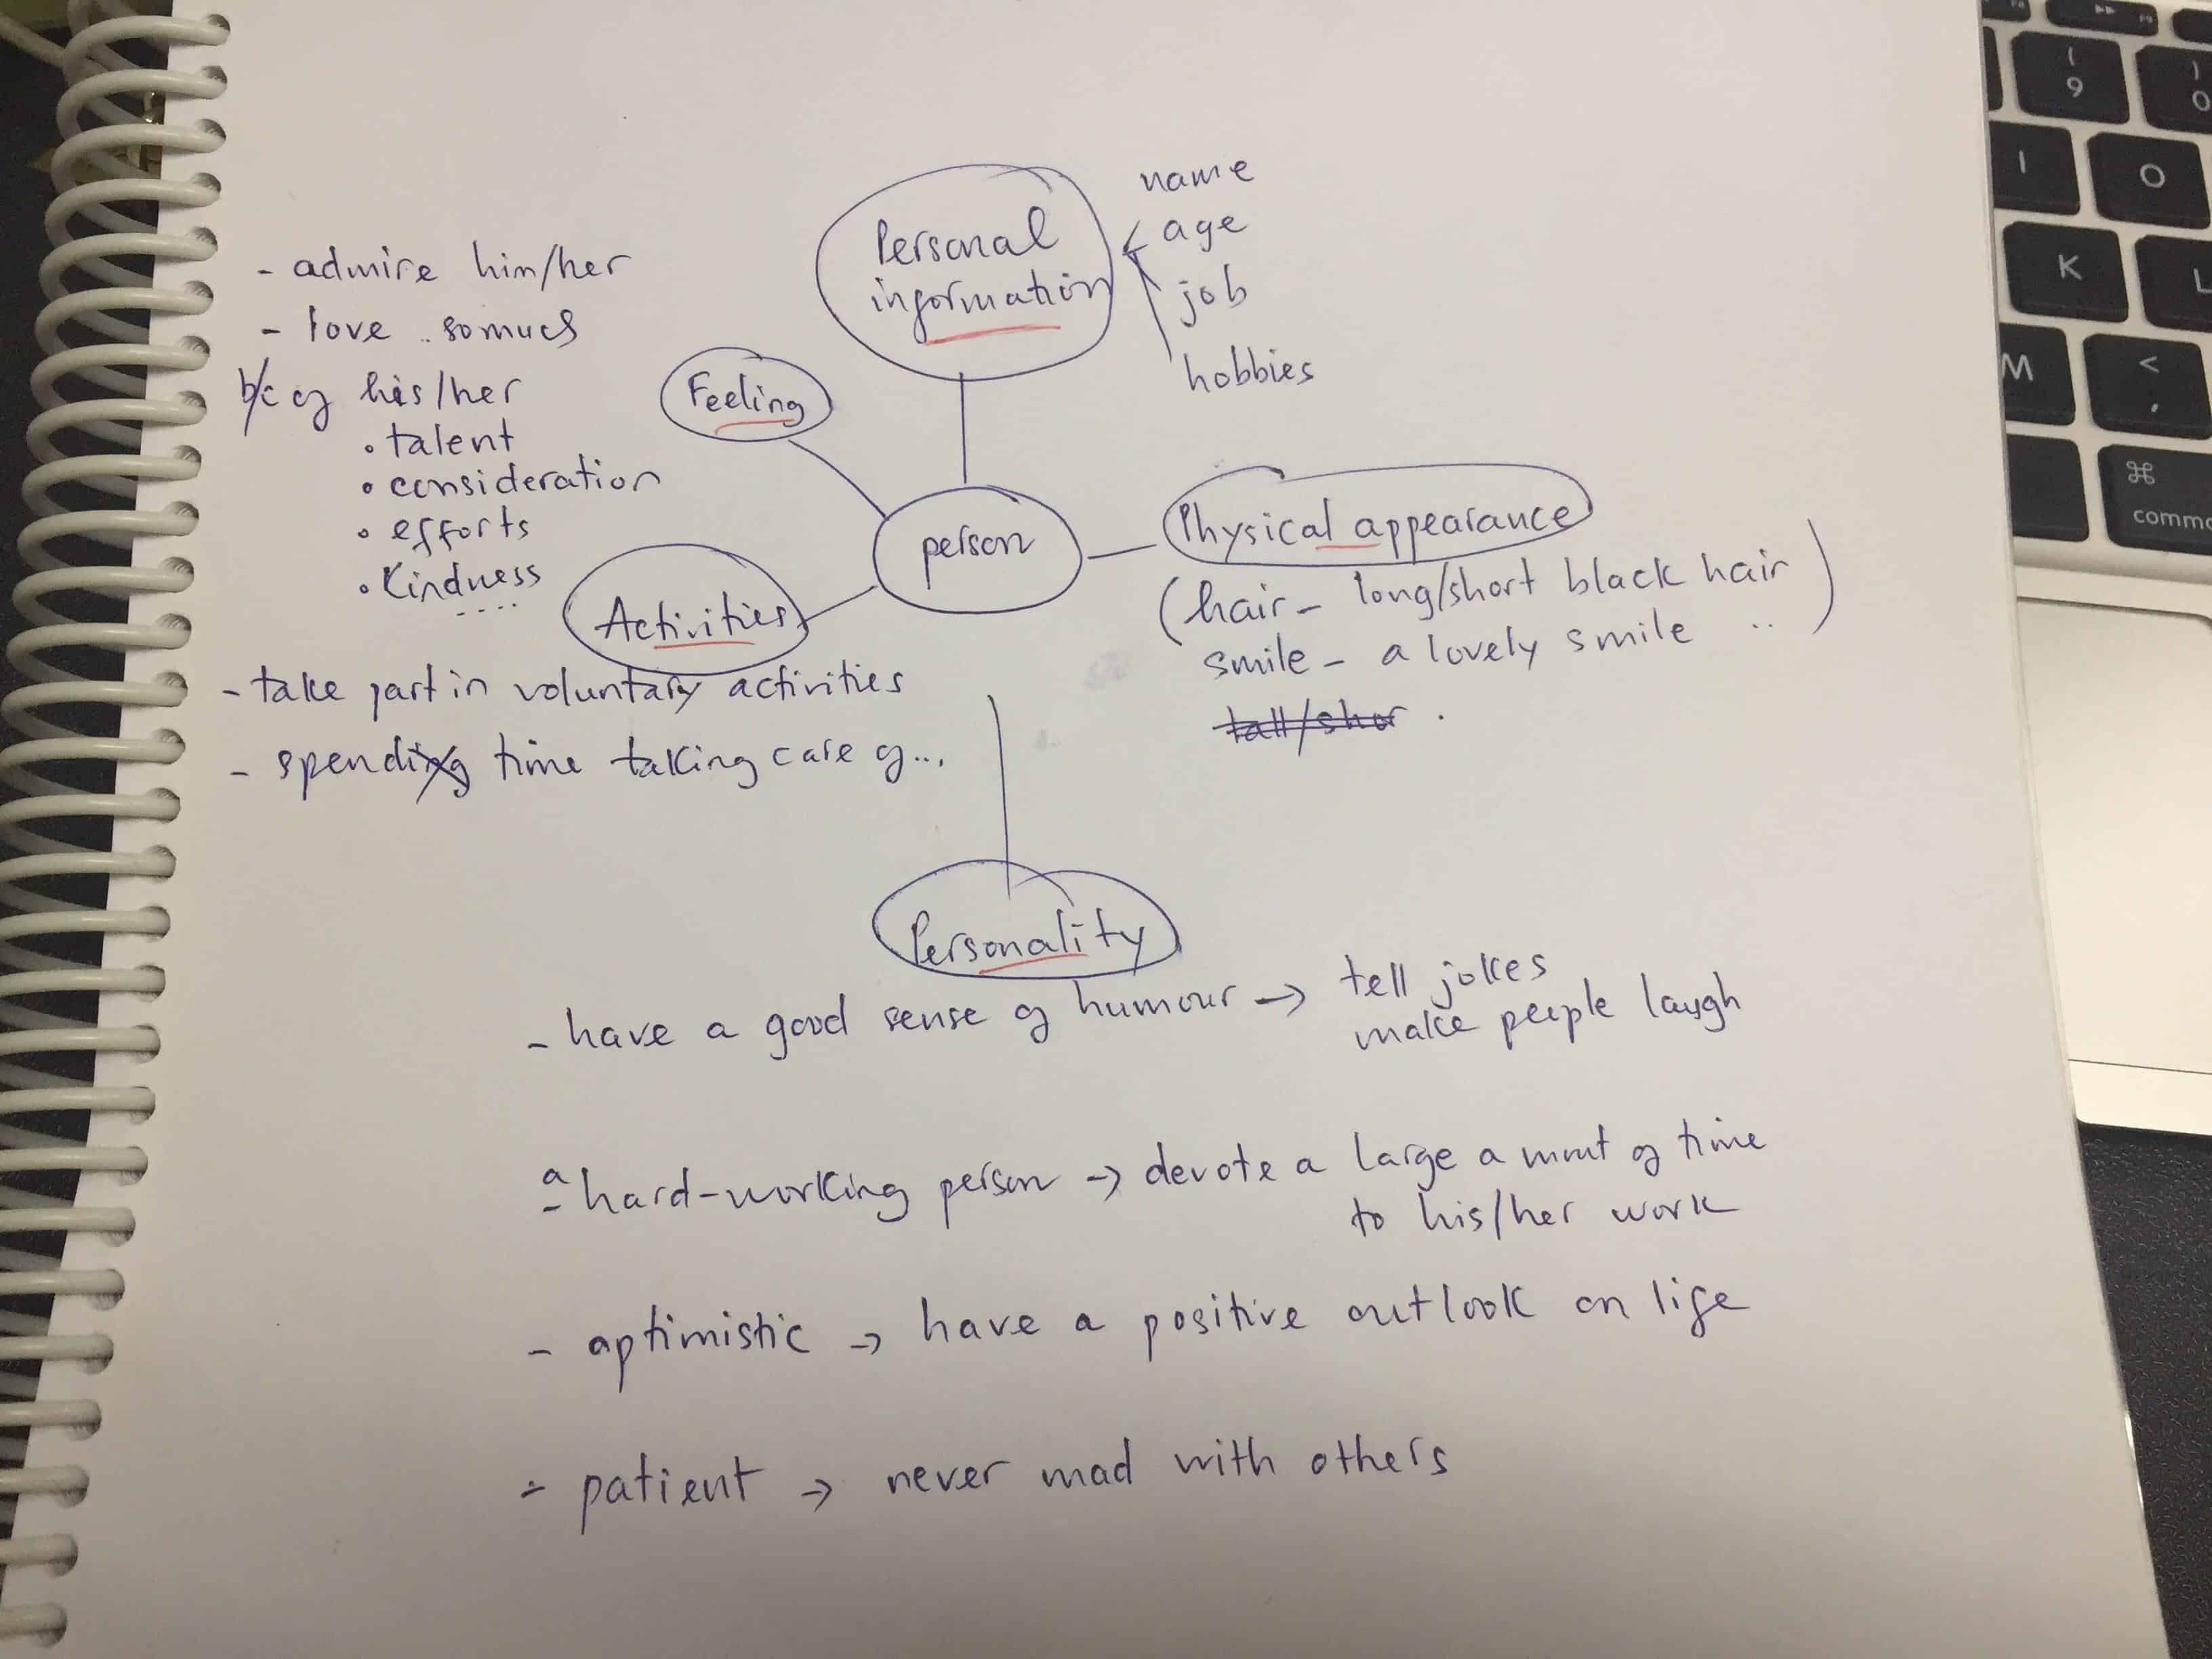 name
Personal
age
information
job
hobbies
- admire him/her
- love .. so much
b/c of his/her
• talent
• consideration
• efforts
• Kindness
....
Feeling
person
Physical appearance
(hair - long/short black hair
smile - a lovely smile .. )
tall/shor .
Activities
- take part in voluntary activities
- spending time taking care of...
Personality
- have a good sense of humour → tell jokes
make people laugh
- a hard-working person → devote a large amount of time
to his/her work
- optimistic → have a positive outlook on life
- patient → never mad with others
( 9
) 0
I
O
K
L
M
< ,
⌘
F9